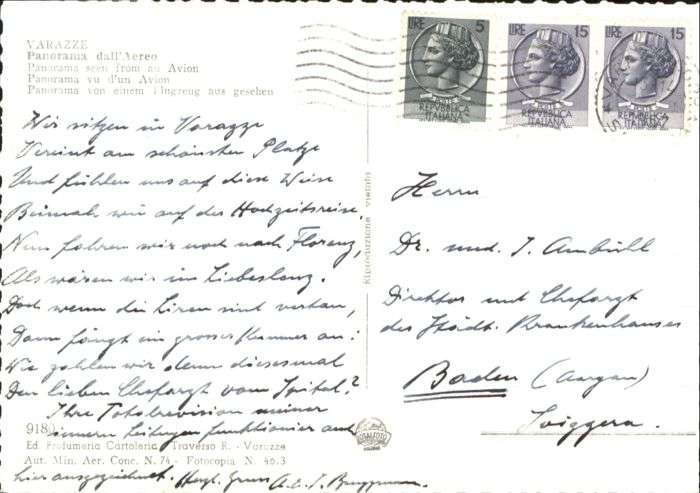 VARAZZE
Panorama dall'Aereo
Panorama seen from an Avion
Panorama vu d'un Avion
Panorama von einem Flugzeug aus gesehen
LIRE 5
REPVBBLICA
ITALIANA
LIRE 15
REPVBBLICA
ITALIANA
LIRE 15
REPVBBLICA
ITALIANA
Wir sitzen in Varazze
Vereint am schönsten Platze
Und fühlen uns auf diese Weise
Beinah wie auf der Hochzeitsreise.
Nun fahren wir noch nach Florenz,
Als wären wir im Liebeslenz.
Doch wenn die Liren sind vertan,
Dann fängt ein grosser Kummer an:
Wie zahlen wir denn diesesmal
Den lieben Chefarzt vom Spital?
Ihre Totalrevision meiner
innern Leitungen funktioniert auch
hier ausgezeichnet. Herzl. Gruss
Riproduzione vietata
Herrn
Dr. med. J. Ambühl
Direktor und Chefarzt
des Städt. Krankenhauses
Baden (Aargau)
Svizzera.
918
Ed. Profumeria Cartoleria Traverso R. - Varazze
Aut. Min. Aer. Conc. N. 74 - Fotocopia N. 46.3